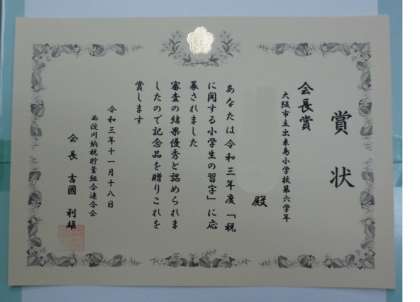 賞状
会長賞
大阪市立出来島小学校第六学年
殿
あなたは令和三年度「税
に関する小学生の習字」に応
募されました
審査の結果優秀と認められま
したので記念品を贈りこれを
賞します
令和三年十一月十八日
西淀川納税貯蓄組合連合会
会長 吉國 利雄